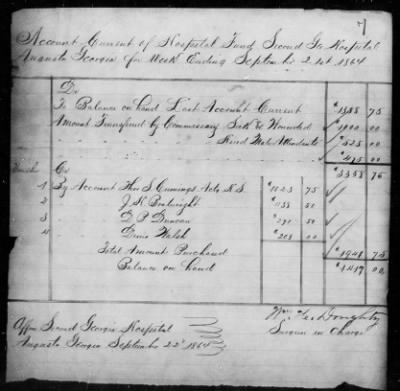 7
Account Current of Hospital Fund Second Ga Hospital
Augusta Georgia for Week Ending September 21st 1864
Dr
To Balance on hand Last Account Current $1888 75
Amount Transferred by Commissary Sick & Wounded 1000 00
" " Hired Male Attendants 525 00
$475 00
$3358 75
Voucher Cr
1 By Account Thos S Cumings Acts $1023 75
2 " J. K. Boatwright 50
3 " D P Duncan 50
4 " Denis Walsh 208 00
Total Amount Purchased $1941 75
Balance on hand $1417 00
Office Second Georgia Hospital
Augusta Georgia September 22d 1864
Wm H Doughty
Surgeon in Charge